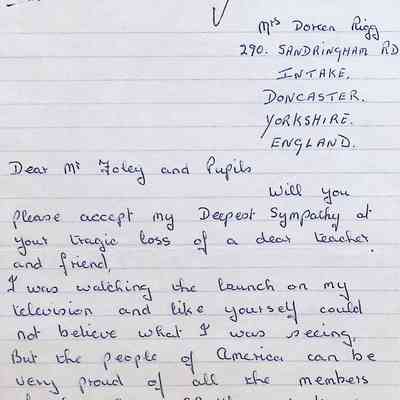 Mrs Doreen Rigg
290. SANDRINGHAM RD
INTAKE.
DONCASTER.
YORKSHIRE.
ENGLAND.
Dear Mr Foley and Pupils
Will you
please accept my Deepest Sympathy at
your tragic loss of a dear teacher
and friend,
I was watching the launch on my
television and like yourself could
not believe what I was seeing,
But the people of America can be
very proud of all the members